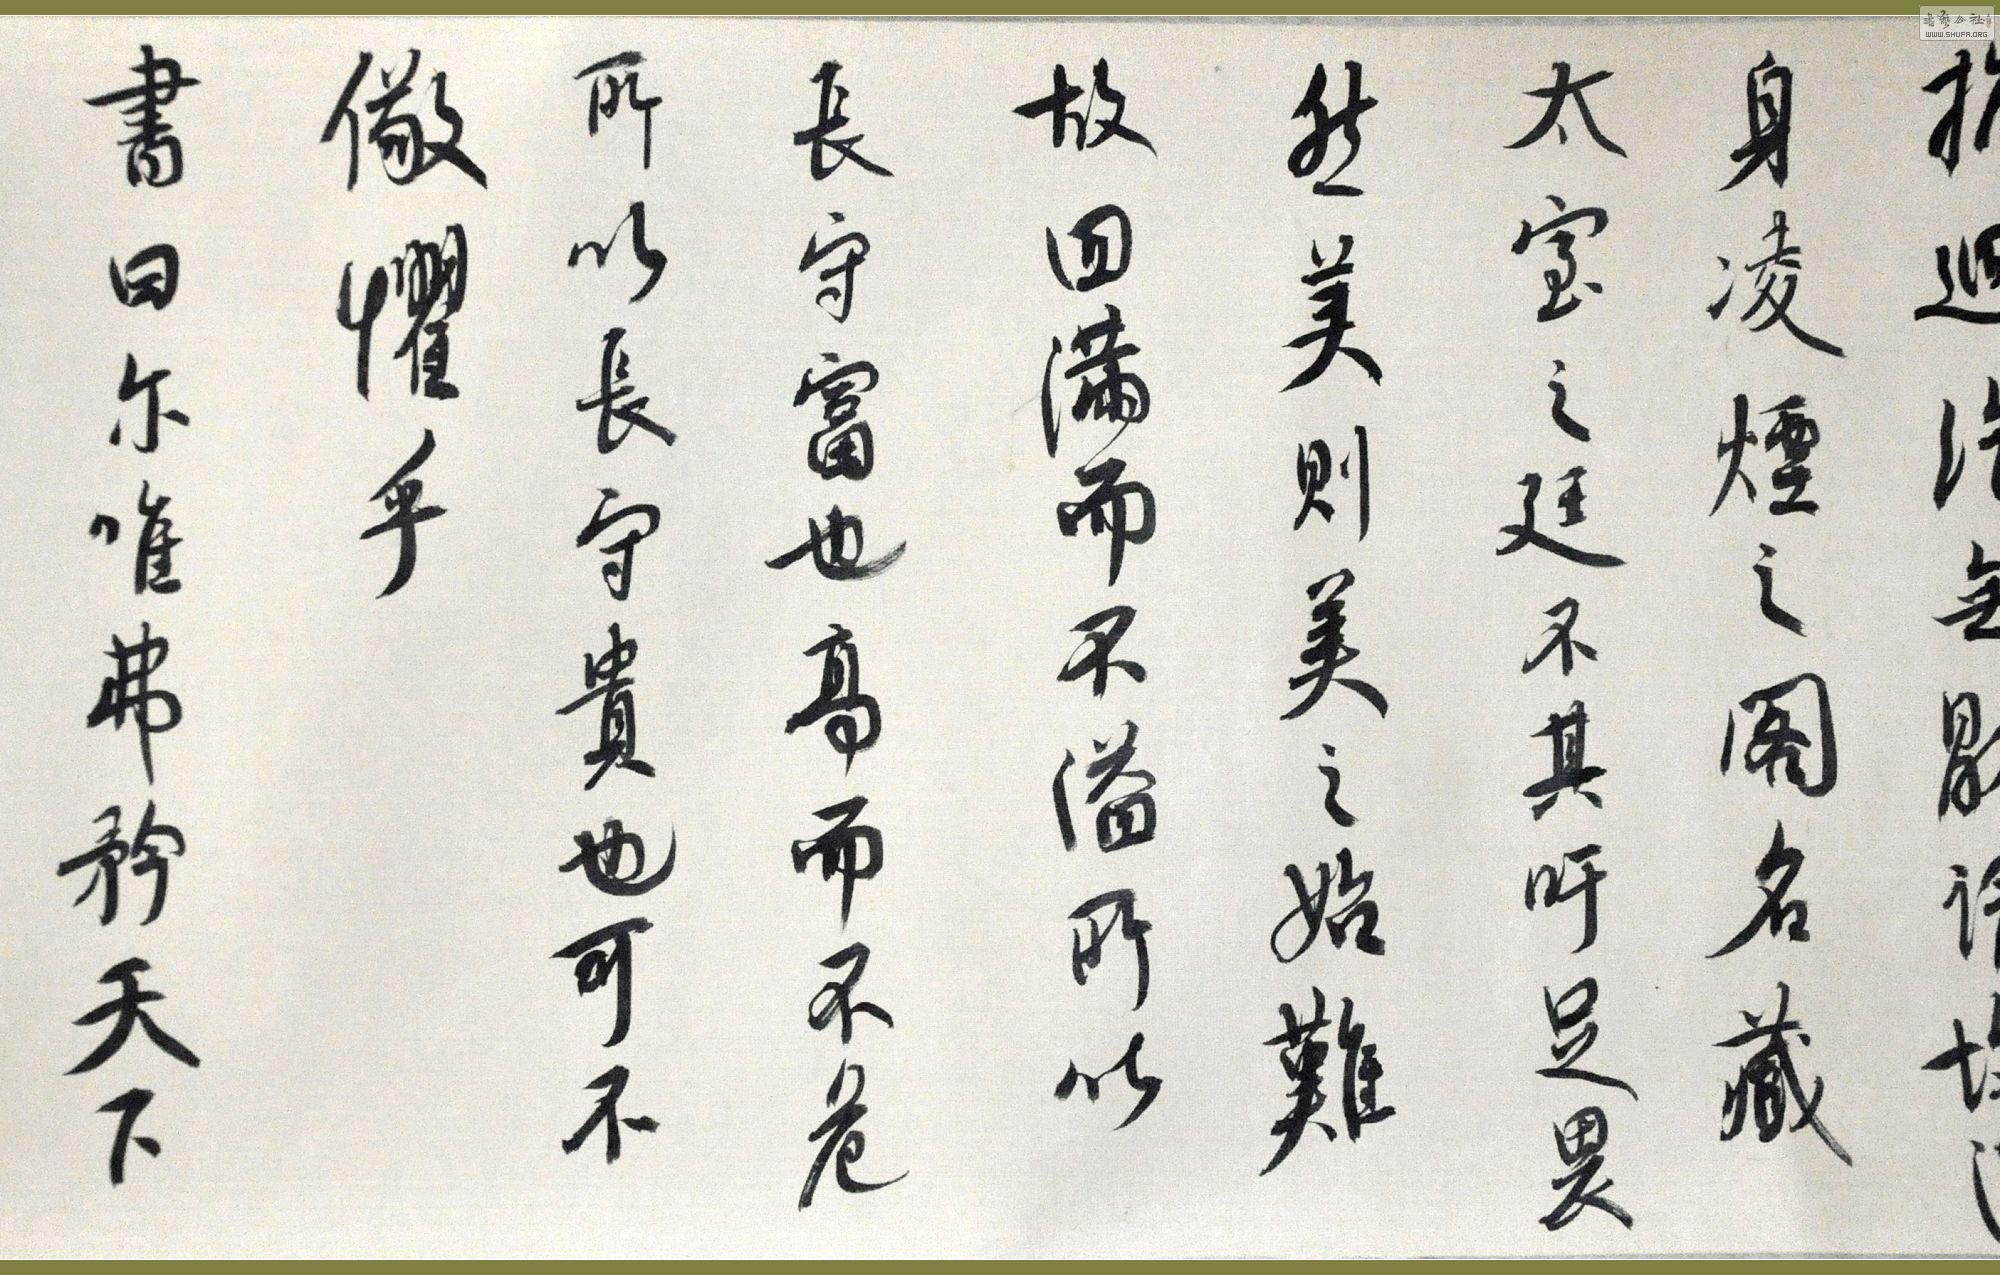 身凌煙之閣名藏
太室之廷不其吁足畏
然美則美之始難
故曰滿而不溢所以
長守富也高而不危
所以長守貴也可不
儆懼乎
書曰尔唯弗矜天下
书艺公社
WWW.SHUFA.ORG